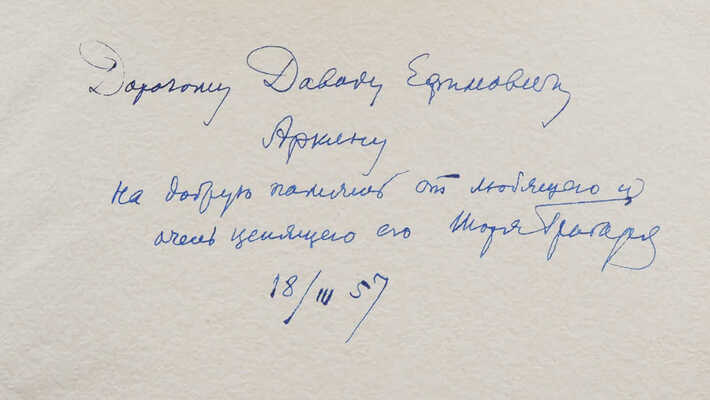 Дорогому Давиду Ефимовичу
Аркину
на добрую память от любящего и
очень ценящего его Игоря Грабаря
18/III 57